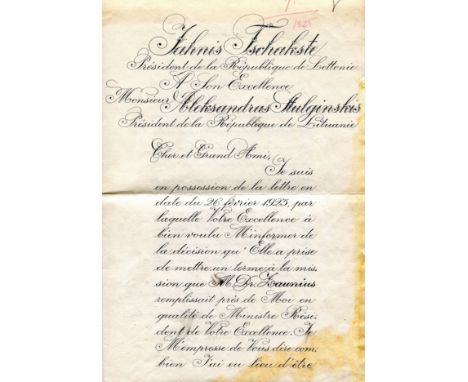 1925
Jahnis Tschakste
Président de la République de Lettonie
A Son Excellence
Monsieur Aleksandras Stulginskis
Président de la République de Lituanie
Cher et Grand Ami,
Je suis
en possession de la lettre en
date du 26 février 1925, par
laquelle Votre Excellence a
bien voulu M'informer de
la décision qu'Elle a prise
de mettre un terme à la mis
sion que M Dr. Zaunius
remplissait près de Moi en
qualité de Ministre Rési-
dent de Votre Excellence. Je
M'empresse de Vous dire com-
bien J'ai eu lieu d'être